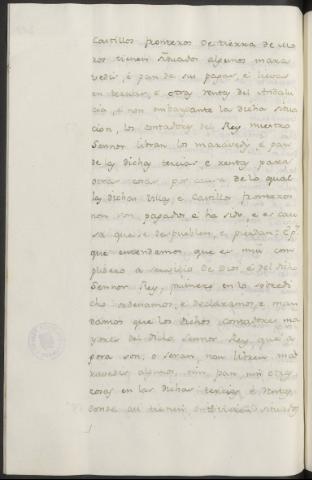 Castillos fronteros de tierra de Mo
ros tienen situados algunos mara
vedis, é pan de sus pagas, é lievas
en tercias, é otras rentas del Andalu
cia, é non embargante la dicha situa
cion, los contadores del Rey nuestro
Sennor libran los maravedis, é pan
de las dichas tercias é rentas para
otras cosas por causa de lo qual
las dichas Villas, é Castillos fronteros
non son pagados, é ha sido, é es cau
sa que se despueblen, é pierdan: E p.r
que entendemos que es mui com
plidero a servicio de Dios, é del dicho
Sennor Rey, primero en lo sobredi
cho ordenamos, é declaramos, é man
damos que los dichos contadores ma
yores del dicho Sennor Rey, que a
gora son, o seran, non libren ma
ravedis algunos, nin pan, nin otras
cosas en las dichas tercias, é rentas
donde asi tienen situados